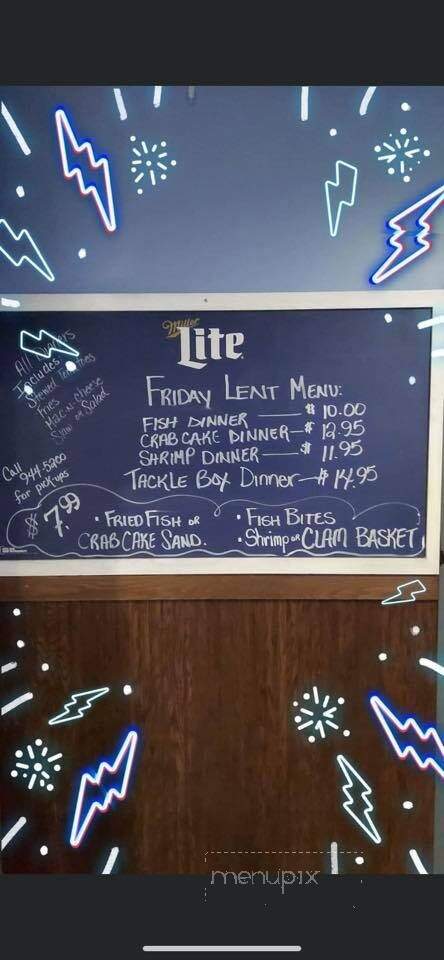 Miller
Lite
FRIDAY LENT MENU:
FISH DINNER — $ 10.00
CRAB CAKE DINNER — $ 12.95
SHRIMP DINNER — $ 11.95
TACKLE BOX Dinner — $ 14.95
All
Includes
Stewed Tomatoes
Fries
Mac-n-cheese
Slaw or Salad
Call 944-5200
for pick-ups
$ 7.99
• FRIED FISH OR
CRAB CAKE SAND.
• FISH BITES
• Shrimp OR CLAM BASKET
menupix